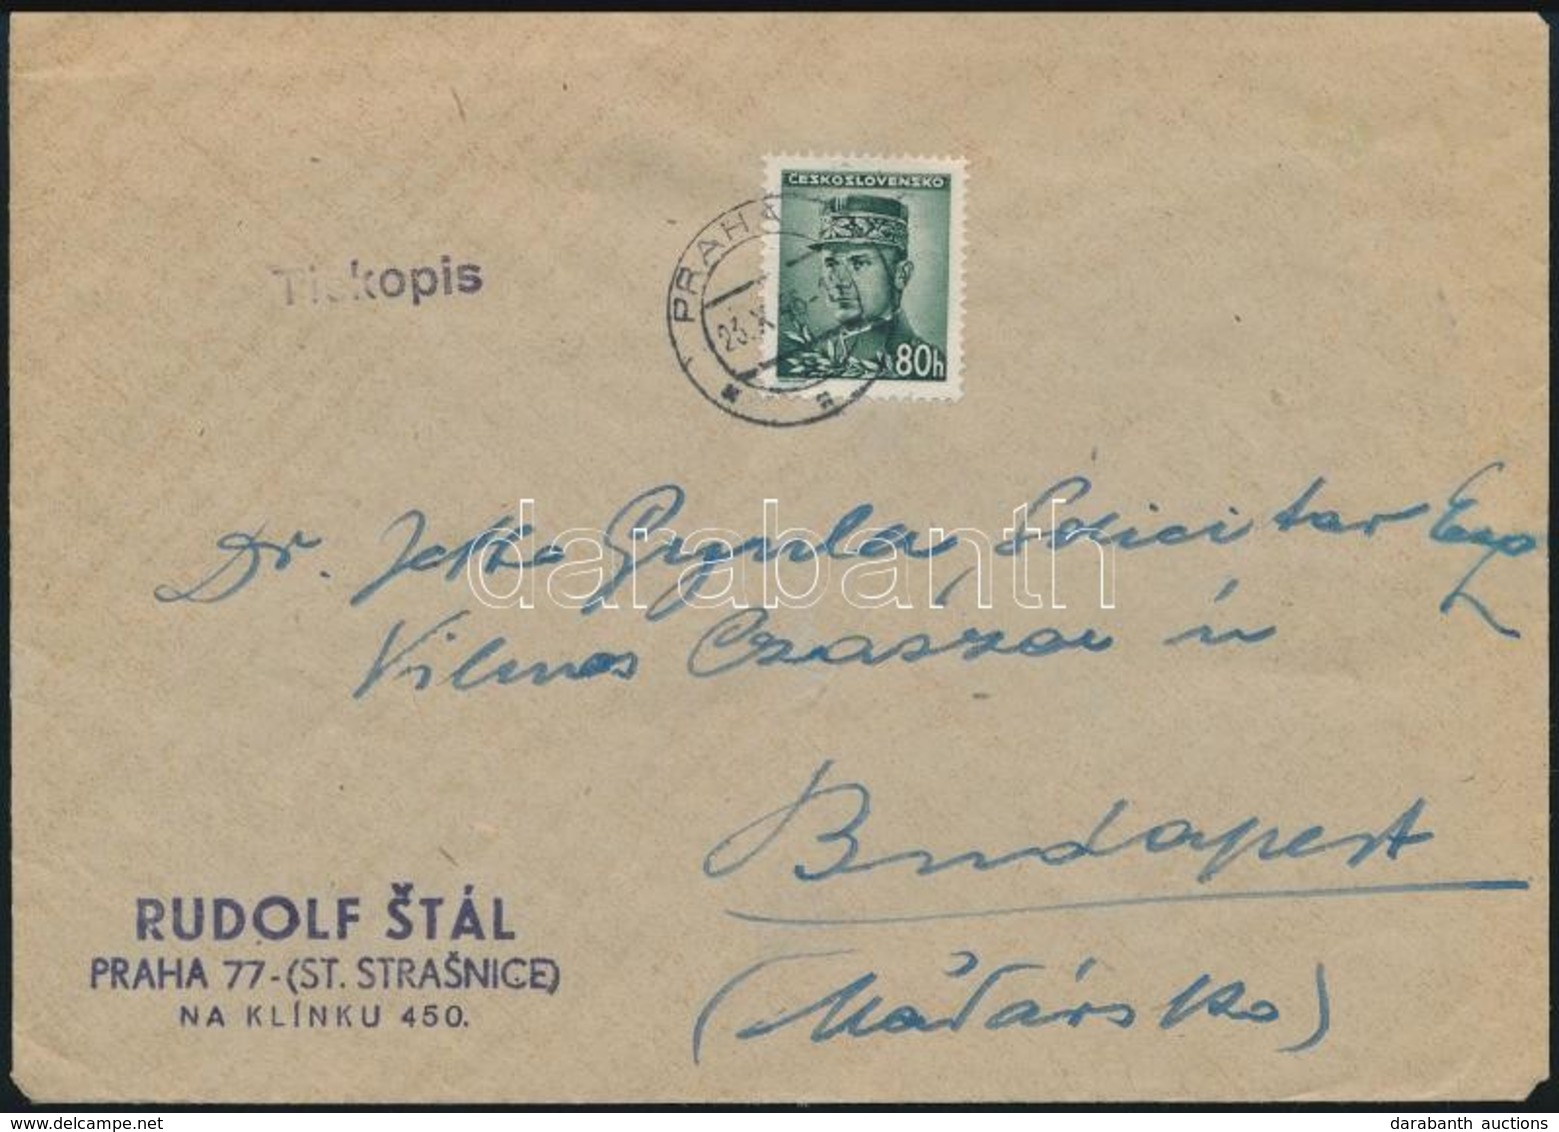 ČESKOSLOVENSKO
PRAHA
23.X
80h
Tiskopis
Dr. Gyula
Vilmos Császár út
darabanth
Budapest
(Maďarsko)
RUDOLF ŠTÁL
PRAHA 77-(ST. STRAŠNICE)
NA KLÍNKU 450.
darabanth auctions